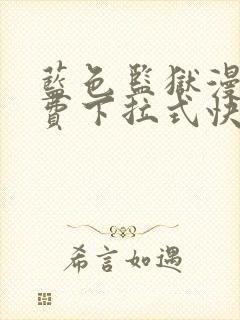 藍色監獄漫
費下拉式快
希言如遇